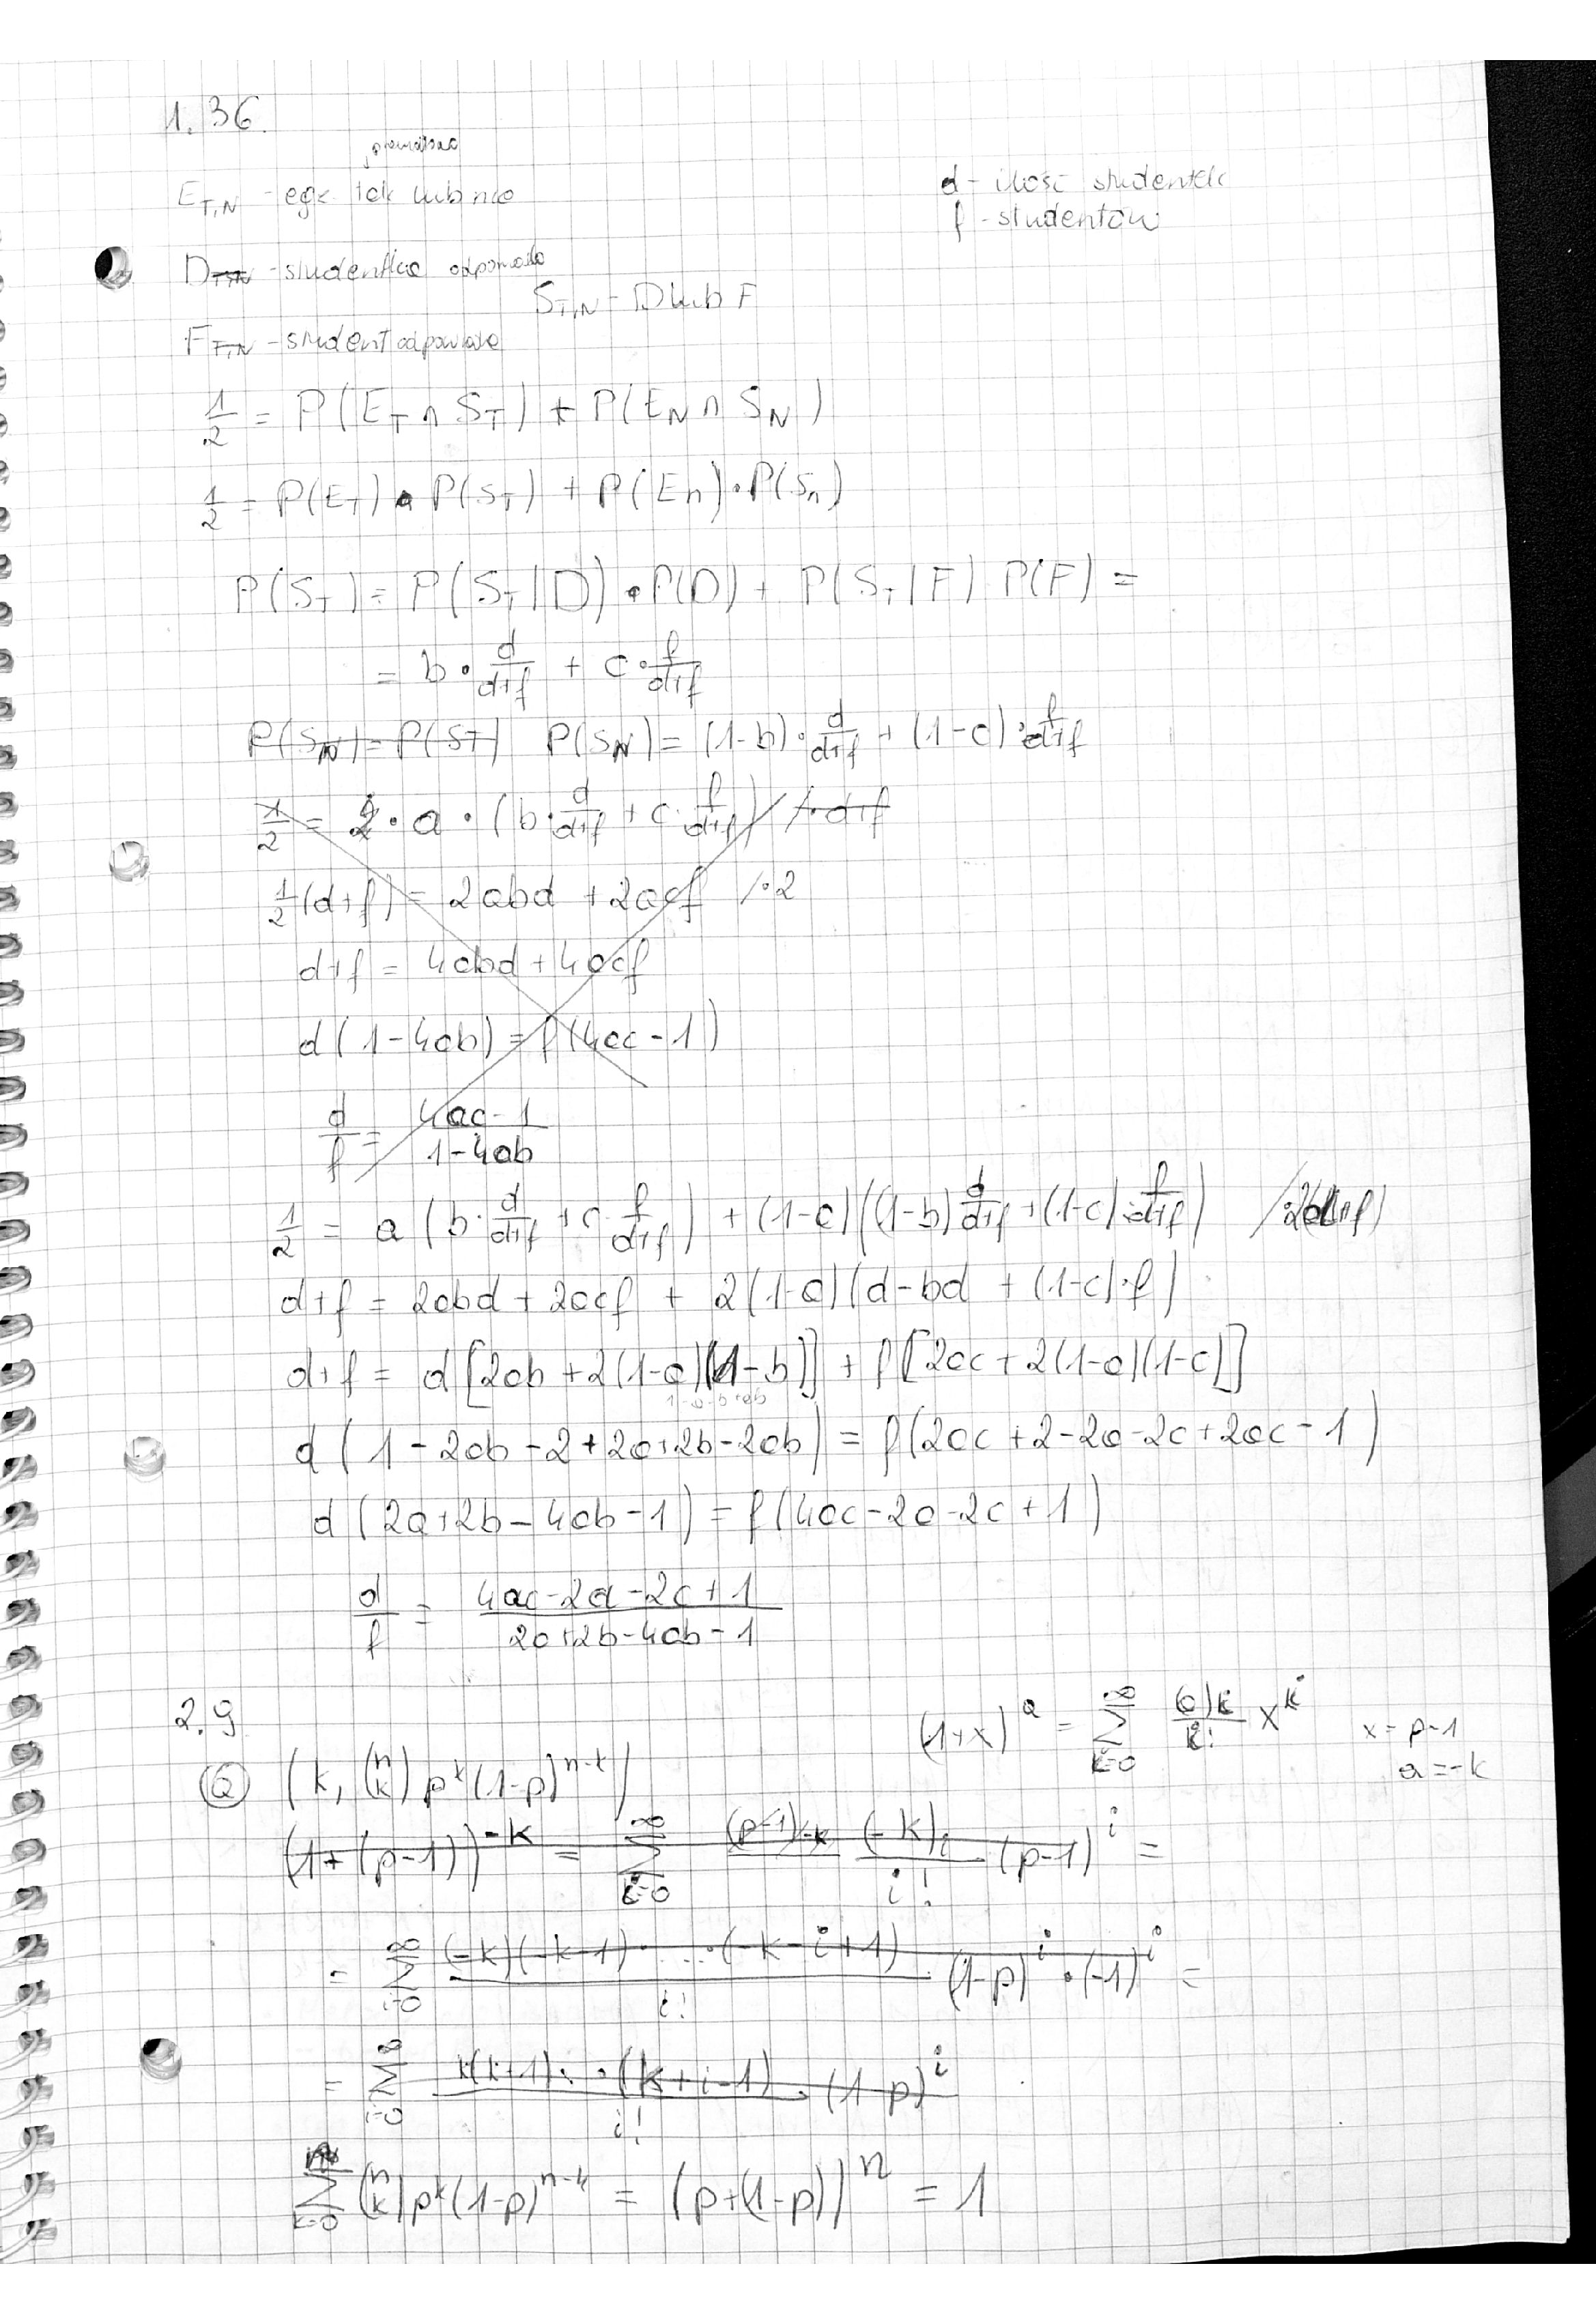 1.36.
E_{T,N} - egz. tak lub nie
d - ilość studentek
f - studentów
D_{T,N} - studentka odpowiada
S_{T,N} - D lub F
F_{T,N} - student odpowiada
1/2 = P(E_T ∩ S_T) + P(E_N ∩ S_N)
1/2 = P(E_T) · P(S_T) + P(E_n) · P(S_n)
P(S_T) = P(S_T|D) · P(D) + P(S_T|F) P(F) =
= b · d/(d+f) + c · f/(d+f)
P(S_N) = P(S_T) P(S_N) = (1-b) · d/(d+f) + (1-c) · f/(d+f)
1/2 = 2 · a · (b · d/(d+f) + c · f/(d+f)) / · d+f
1/2 (d+f) = 2abd + 2acf / · 2
d+f = 4abd + 4acf
d(1-4ab) = f(4ac-1)
d/f = (4ac-1)/(1-4ab)
1/2 = a (b · d/(d+f) + c · f/(d+f)) + (1-a)((1-b) d/(d+f) + (1-c) · f/(d+f)) / · 2(d+f)
d+f = 2abd + 2acf + 2(1-a)(d-bd + (1-c)·f)
d+f = d[2ab + 2(1-a)(1-b)] + f[2ac + 2(1-a)(1-c)]
1-a-b+ab
d(1-2ab-2+2a+2b-2ab) = f(2ac+2-2a-2c+2ac-1)
d(2a+2b-4ab-1) = f(4ac-2a-2c+1)
d/f = (4ac-2a-2c+1)/(2a+2b-4ab-1)
2.9
(1+x)^a = ∑_{k=0}^∞ (a)_k/k! x^k
x = p-1
a = -k
(a) (k, (n k) p^k (1-p)^{n-k})
(1+(p-1))^{-k} = ∑_{i=0}^∞ (p-1)_{-k} (-k)_i/i! · (p-1)^i =
= ∑_{i=0}^∞ (-k)(-k-1)· ... ·(-k-i+1)/i! · (1-p)^i · (-1)^i =
= ∑_{i=0}^∞ k(k+1)· · (k+i-1)/i! · (1-p)^i
∑_{k=0}^n (n k) p^k (1-p)^{n-k} = (p+(1-p))^n = 1